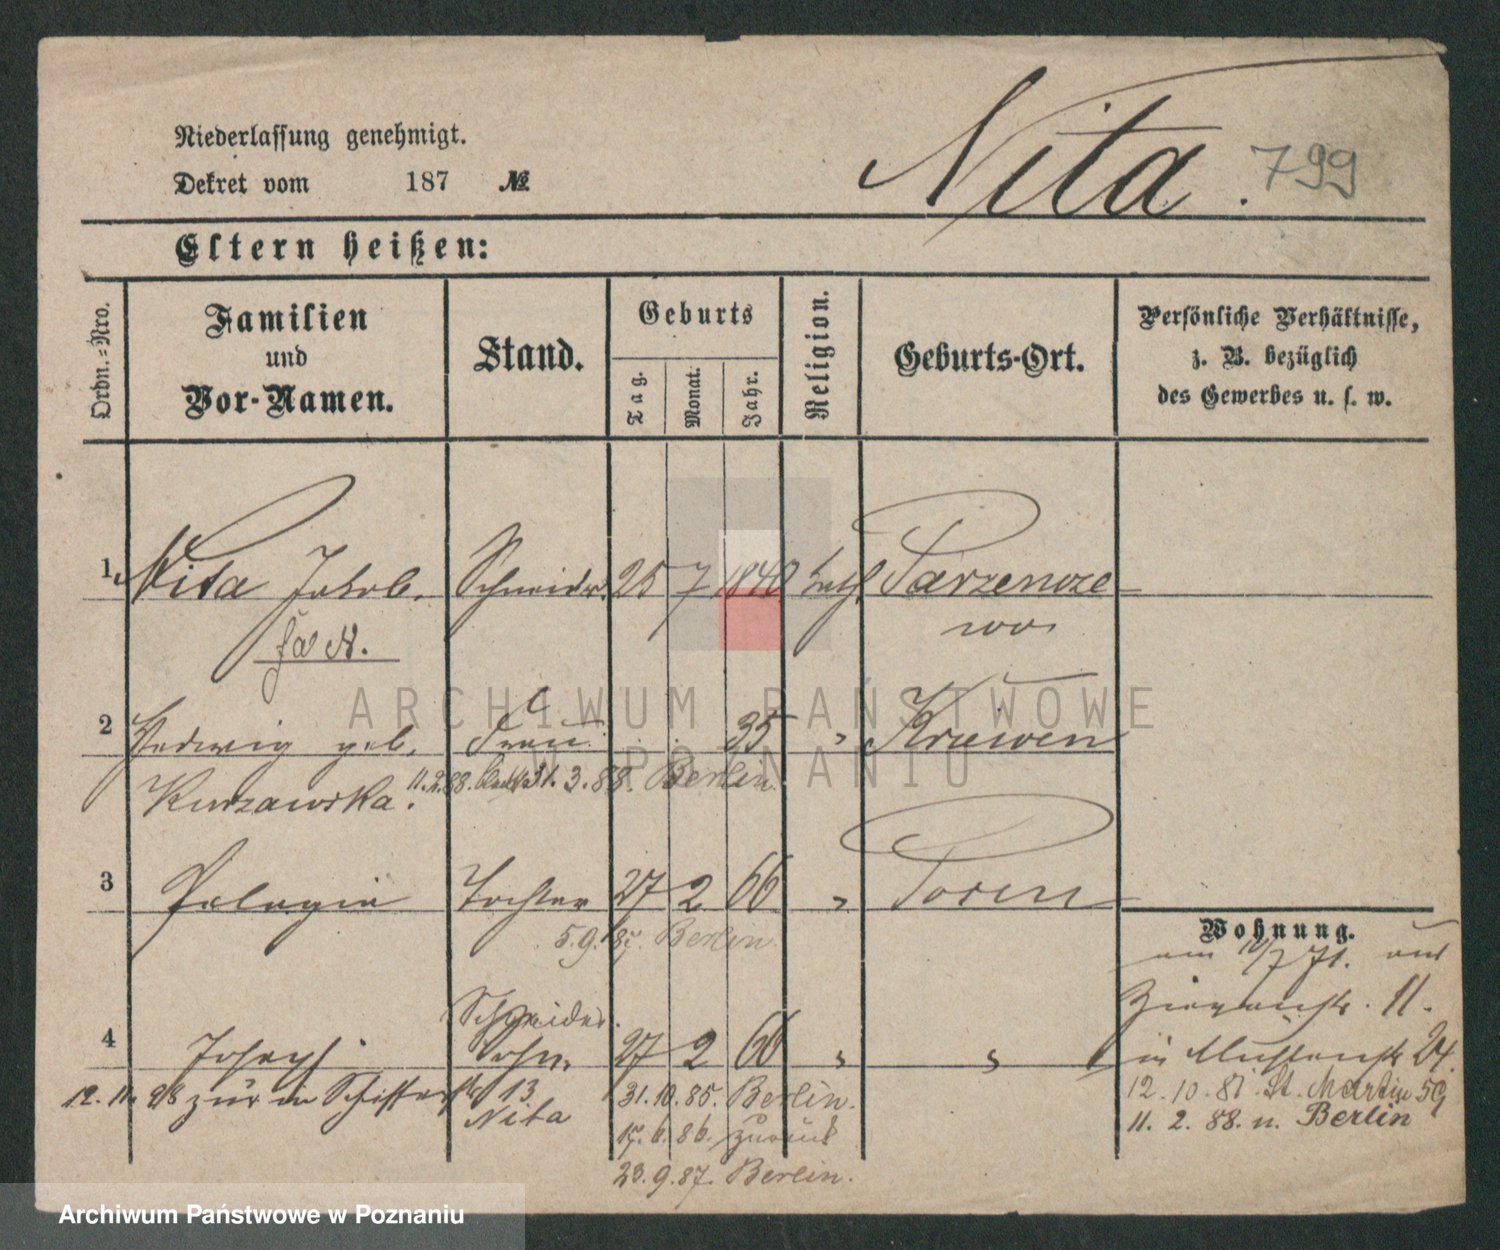 Nita. 799
Niederlassung genehmigt.
Dekret vom 187 №
Eltern heißen:
Ordn.=Nro.
Familien
und
Vor-Namen.
Stand.
Geburts
Tag.
Monat.
Jahr.
Religion.
Geburts-Ort.
Persönliche Verhältnisse,
z. B. bezüglich
des Gewerbes u. s. w.
1. Nita Jakob. Schneider 25 7 1840 kath. Parzencze
wo
2 Hedwig geb. Frau 35 " Kriewen
Kurzawska. 11.2.88. 31.3.88. Berlin
3 Pelagia Tochter 27 2 66 " Posen
5.9. Berlin
Schneider.
4 Joseph Sohn 27 2 66 " "
12. 11. zur in 13
Nita
31.10.85. Berlin.
86. zurück
23.9.87. Berlin.
Wohnung.
am /7 71. aus
Ziegenstr. 11.
in 24.
12.10.81. St. Martin 59
11. 2. 88. n. Berlin
ARCHIWUM PAŃSTWOWE
W POZNANIU
Archiwum Państwowe w Poznaniu